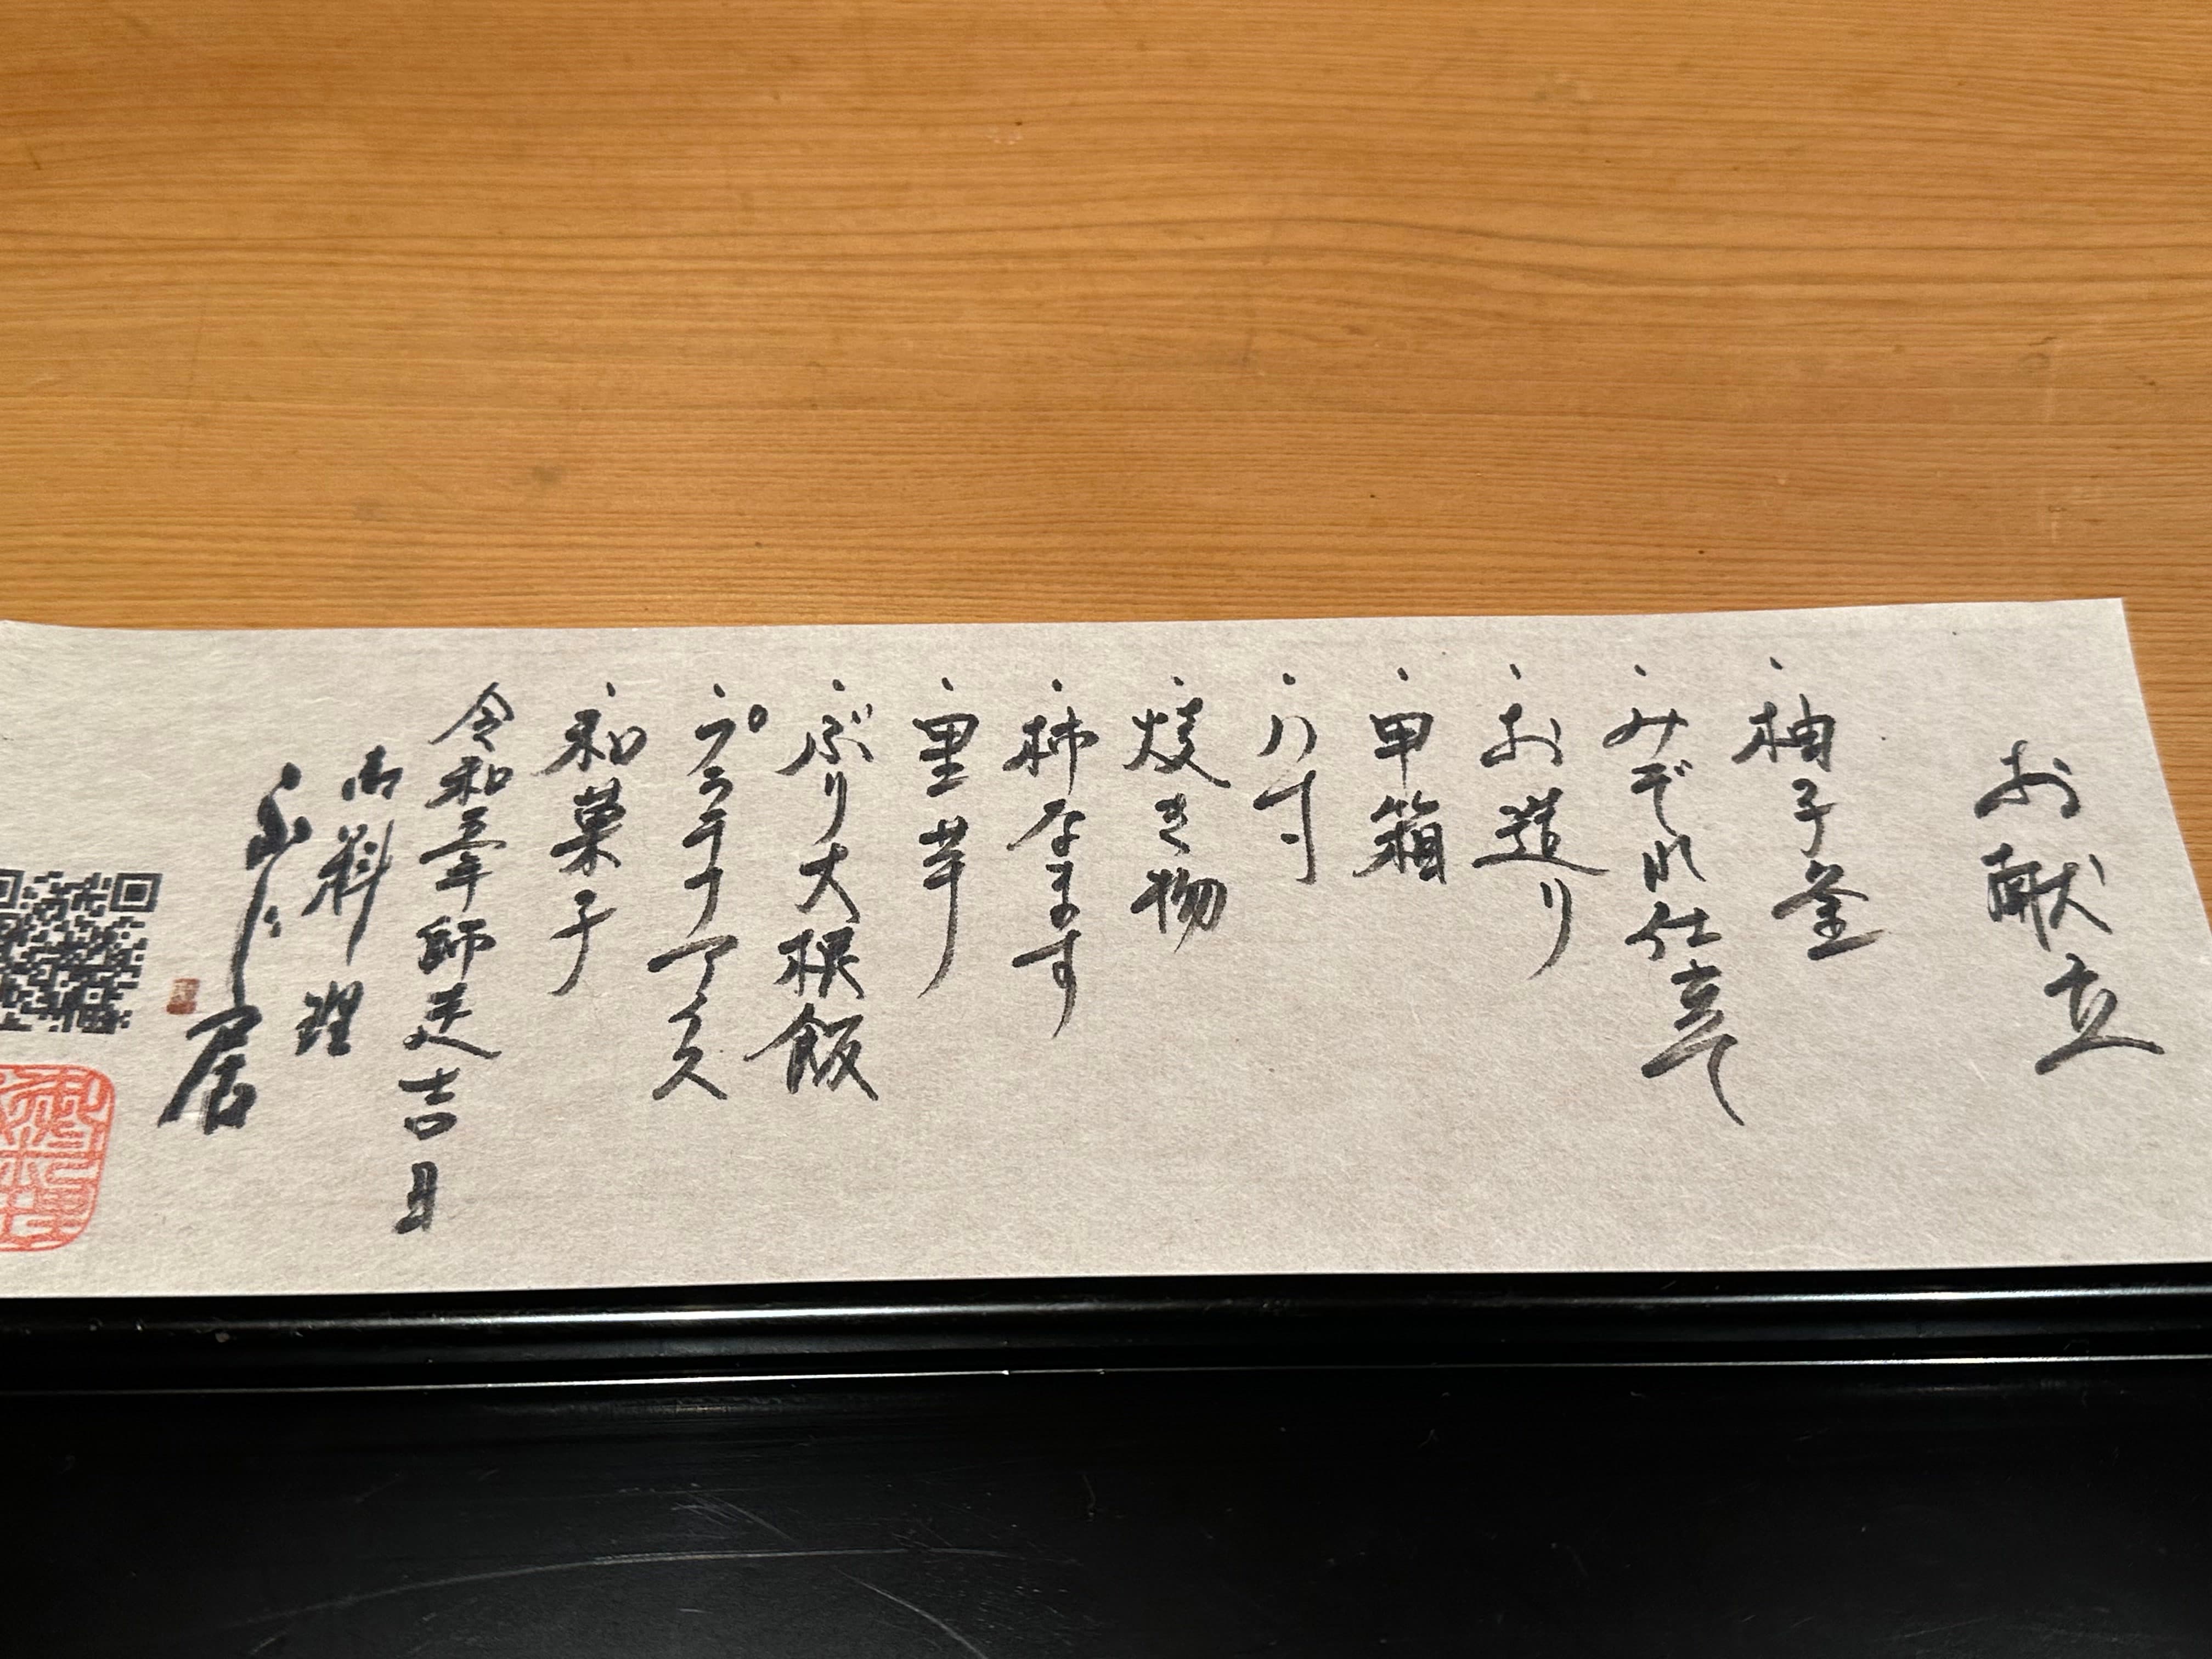 お献立
・柚子釜
・みぞれ仕立て
・お造り
・甲箱
・八寸
・焼き物
・柿なます
・里芋
・ぶり大根飯
・プラチナアイス
・和菓子
令和五年師走吉日
御料理
居